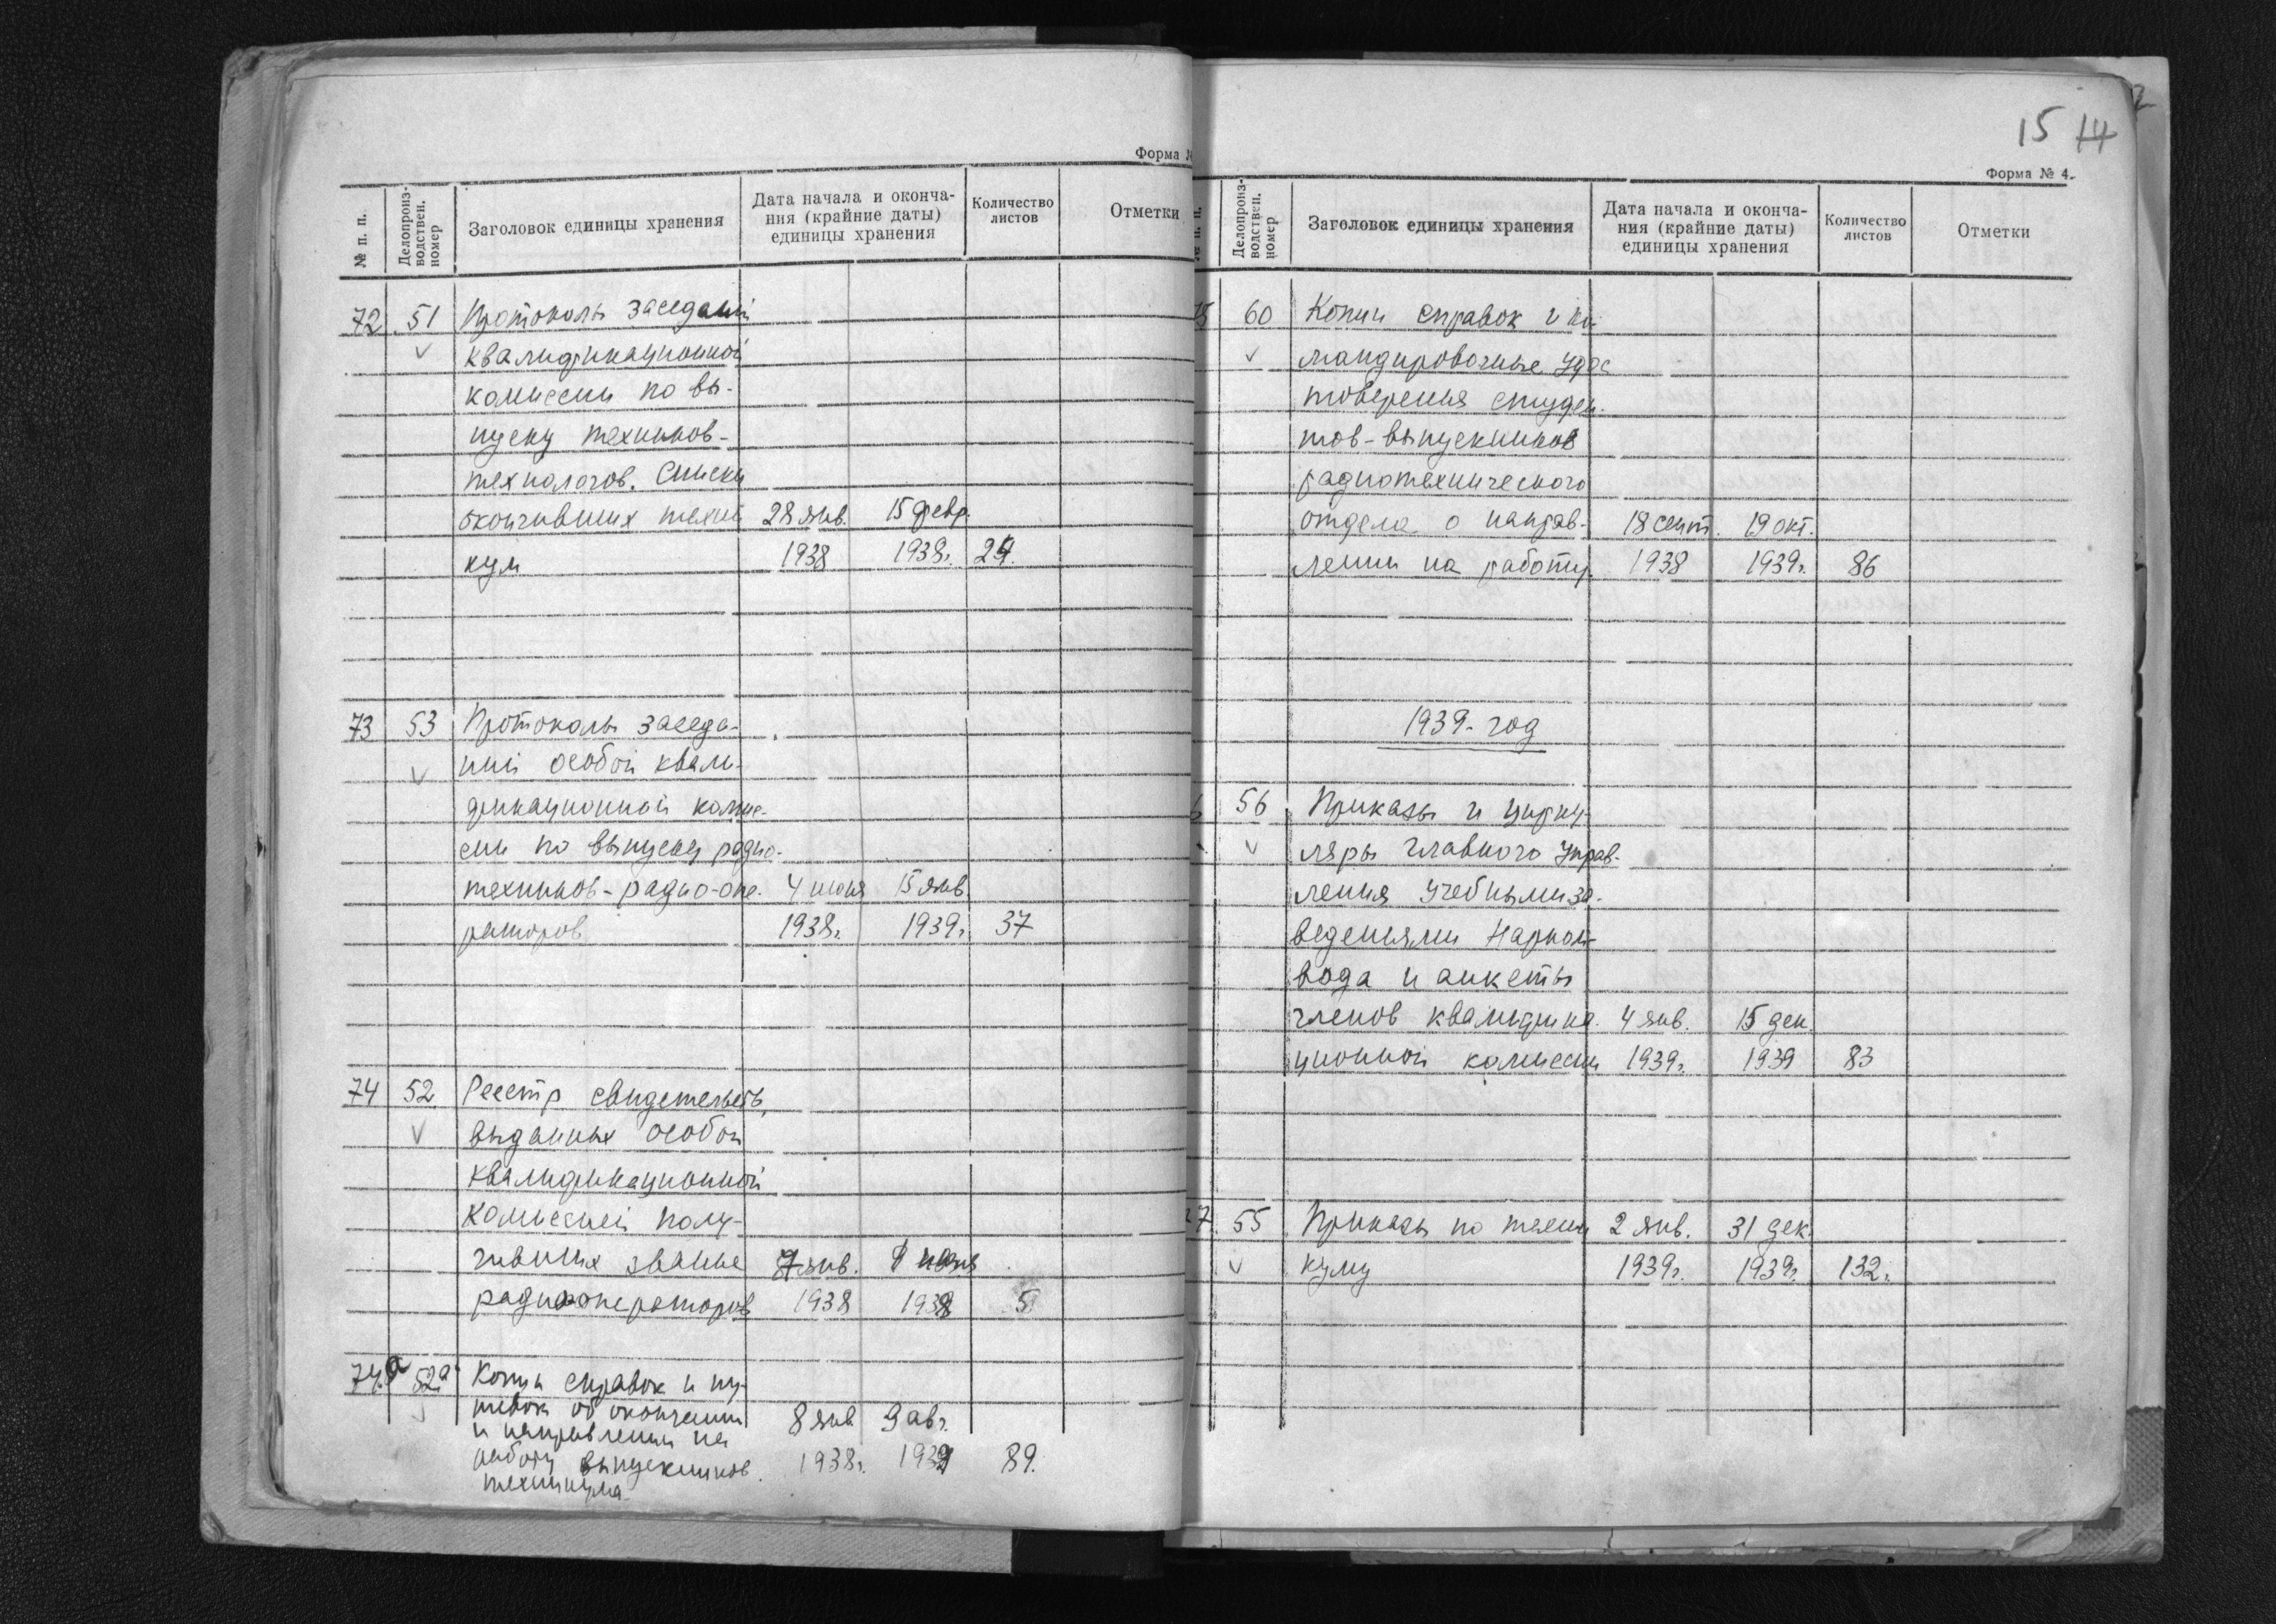 Форма №
№ п. п.
Делопроиз-
водствен.
номер
Заголовок единицы хранения
Дата начала и оконча-
ния (крайние даты)
единицы хранения
Количество
листов
Отметки
72 51 Протоколы заседаний
квалификационной
комиссии по вы-
пуску техников-
технологов. Списки
окончивших техни 28 янв. 15 февр.
кум 1938 1938г. 24.
73 53 Протоколы заседа-
ний особой квали-
фикационной комис-
сии по выпуску радио-
техников-радио-опе- 4 июня 15 янв.
раторов 1938г. 1939г. 37
74 52 Реестр свидетельств,
выданных особой
квалификационной
комиссией полу-
чивших звание 7 янв.
радиооператоров 1938 1938 5
74а 52а Копии справок и пу-
тевок об окончании
и направлении на 8 янв. 9 авг.
работу выпускников 1938г. 1939 89.
техникума
15 14
Форма № 4.
№ п. п.
Делопроиз-
водствен.
номер
Заголовок единицы хранения
Дата начала и оконча-
ния (крайние даты)
единицы хранения
Количество
листов
Отметки
75 60 Копии справок и ко-
мандировочные удос
товерения студен-
тов-выпускников
радиотехнического
отдела о направ- 18 сент. 19 окт.
лении на работу. 1938 1939г. 86
1939-год
6 56 Приказы и цирку-
ляры Главного Управ-
ления учебными за-
ведениями Нарком-
вода и анкеты
членов квалифика- 4 янв. 15 дек.
ционной комиссии 1939г. 1939 83
77 55 Приказы по техни 2 янв. 31 дек.
куму 1939г. 1939г. 132.